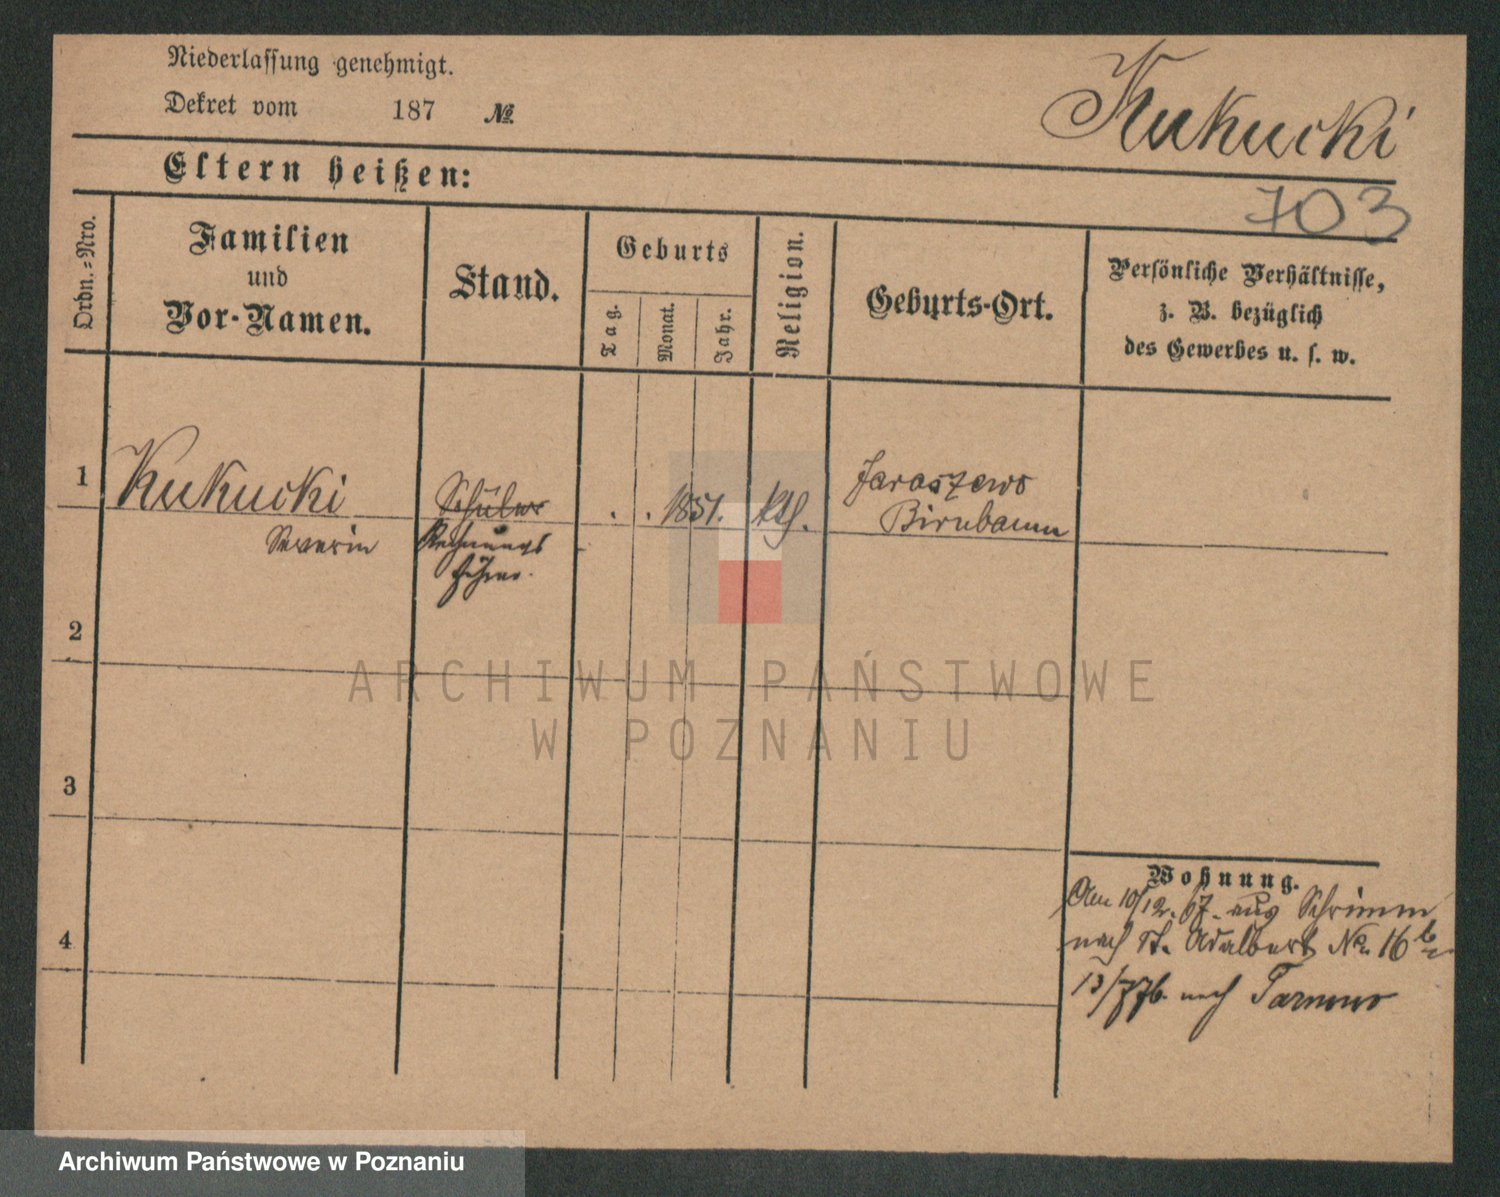 Niederlassung genehmigt.
Dekret vom 187 №.
Kukucki
703
Eltern heißen:
Ordn.=Nro.
Familien
und
Vor-Namen.
Stand.
Geburts
Tag.
Monat.
Jahr.
Religion.
Geburts-Ort.
Persönliche Verhältnisse,
z. B. bezüglich
des Gewerbes u. s. w.
1
Kukucki
Severin
Schüler
Rechnungs
führer.
. . 1851.
kth.
Jaraszewo
Birnbaum
2
3
4
Wohnung.
Am 10/12. 67. aus Schrimm
nach St. Adalbert No. 16
13/7 76. nach
ARCHIWUM PAŃSTWOWE
W POZNANIU
Archiwum Państwowe w Poznaniu